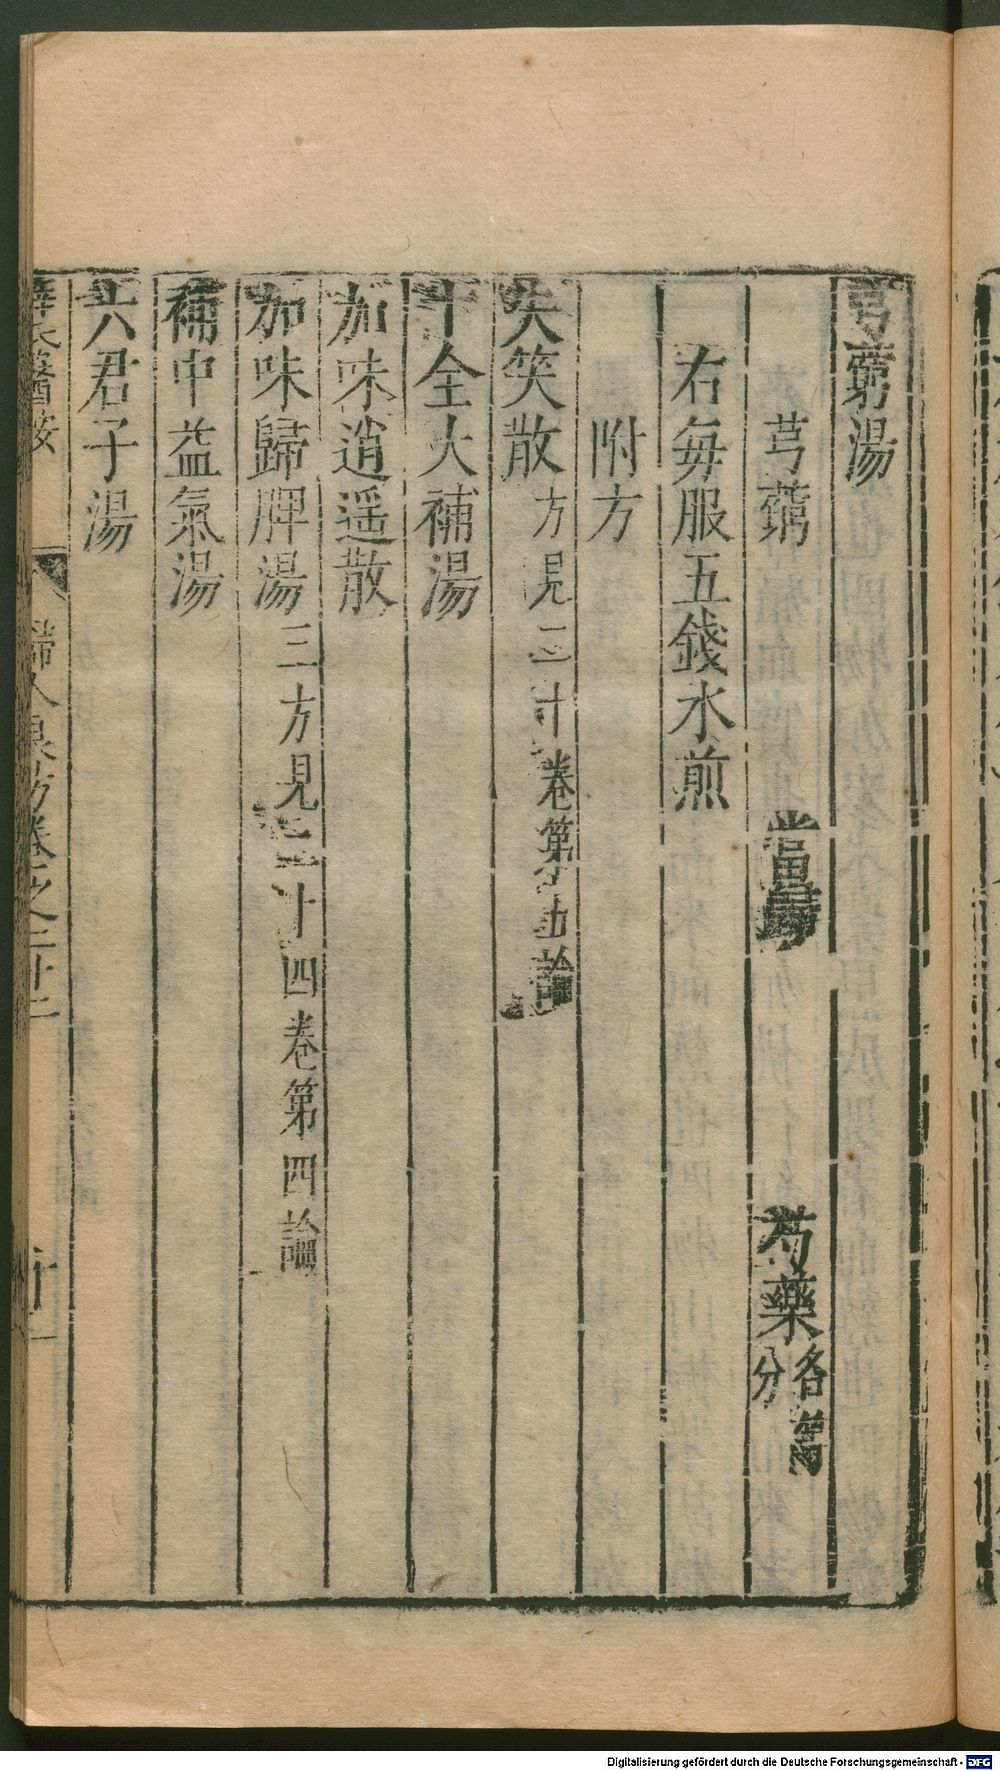 芎藭湯
芎藭 當歸 芍藥各等分
右每服五錢水煎
附方
失笑散方見二十卷第五論
十全大補湯
加味逍遥散
加味歸脾湯三方見二十四卷第四論
補中益氣湯
六君子湯
薛氏醫按 婦人良方卷之二十二
Digitalisierung gefördert durch die Deutsche Forschungsgemeinschaft - DFG